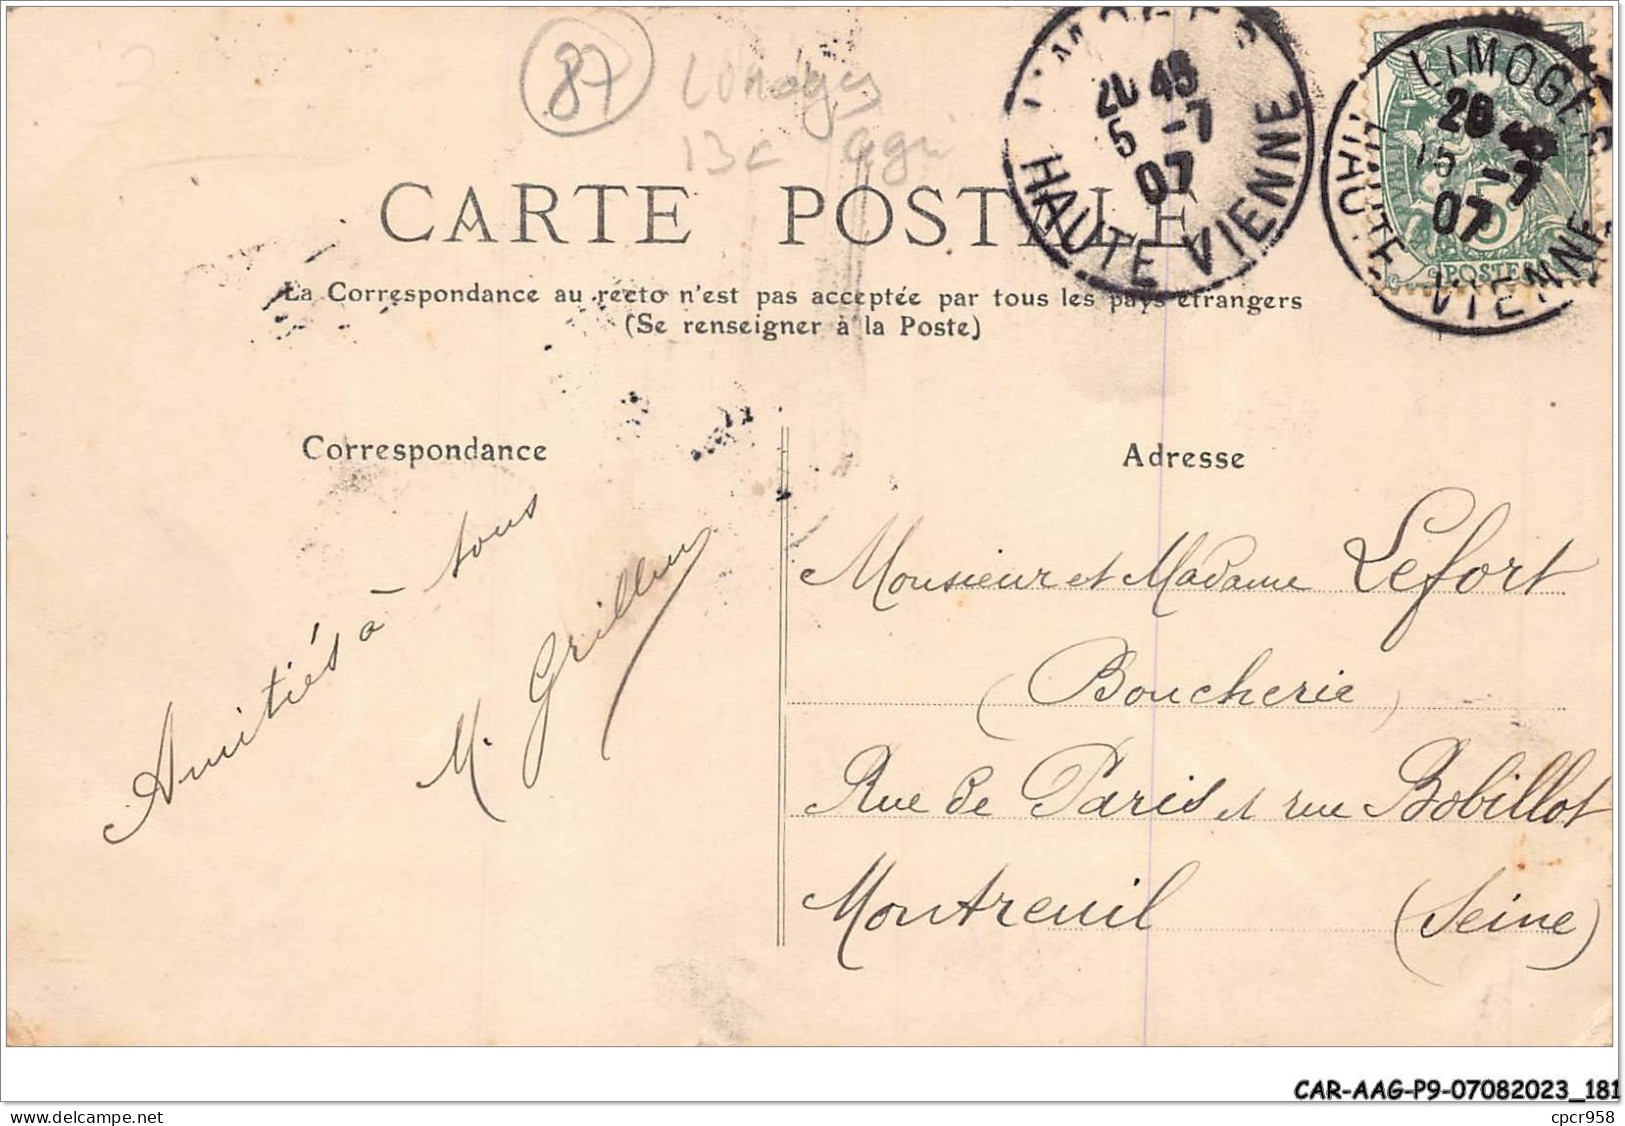 87
Limoges
13c agri
CARTE POSTALE
La Correspondance au recto n'est pas acceptée par tous les pays étrangers
(Se renseigner à la Poste)
LIMOGES
20 45
15 -7
07
HAUTE VIENNE
LIMOGES
20 45
15 -7
07
HAUTE VIENNE
5
POSTES
Correspondance
Amitiés à tous
M.
Adresse
Monsieur et Madame Lefort
(Boucherie)
Rue de Paris et rue Bobillot
Montreuil (Seine)
CAR-AAG-P9-07082023_181
delcampe.net
cpcr958